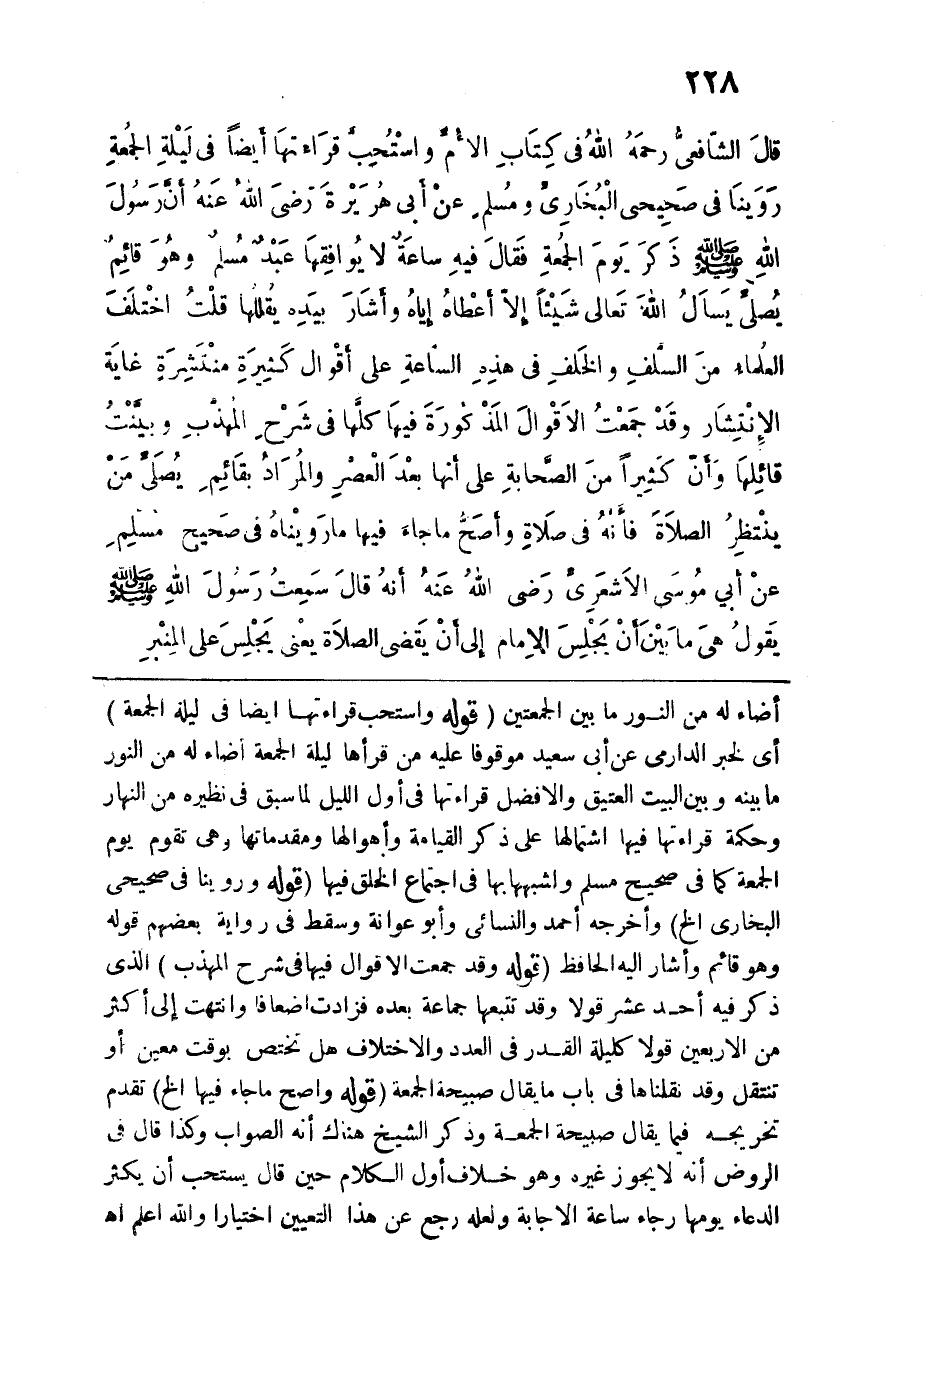 ٢٢٨
قالَ الشَّافعىُّ رحمَهُ اللهُ فى كِتَابِ الأُمِّ واسْتُحِبَّ قرَاءتهَا أَيضاً فى لَيْلةِ الجمُعةِ
رَوَينَا فى صَحِيحى الْبُخَارِىِّ ومُسلم عنْ أَبى هُرَيْرةَ رَضىَ اللهُ عَنهُ أَنَّ رَسُولَ
اللهِ ﷺ ذَكَرَ يَومَ الجمُعةِ فقَالَ فيهِ ساعَةٌ لا يُوافِقهَا عَبْدٌ مُسلمٌ وهُوَ قائِمٌ
يُصلِّى يَسألُ اللهَ تَعالى شَيْئاً إلاّ أَعْطاهُ إياهُ وأَشَارَ بيَدِه يقُللها قلْتُ اخْتلَفَ
العُلماء منَ السَّلفِ والخلَفِ فى هذِهِ السَّاعةِ على أَقْوال كَثِيرَةٍ منْتَشِرَةٍ غايَة
الإنْتِشَار وقَدْ جَمَعْتُ الاَقْوالَ المَذْكُورَةَ فيهَا كلَّها فى شَرْحِ المُهذَّبِ وبيَّنْتُ
قائِلهَا وَأَنَّ كَثِيراً منَ الصَّحابةِ على أنها بعْدَ الْعَصْرِ والمُرَادُ بقَائِمٍ يُصَلِّى مَنْ
ينْتظِرُ الصلاَةَ فأَنهُ فى صَلاةٍ وأَصَحُّ ماجاءَ فيها مارَوينْاهُ فى صَحيح مُسْلمٍ
عنْ أَبي مُوسَى الاَشعَرِىِّ رَضى اللهُ عَنهُ أنهُ قالَ سَمِعتُ رَسُولَ اللهِ ﷺ
يَقولُ هىَ ما بَيْنَ أَنْ يَجْلِسَ الإمام إلى أَنْ يَقضى الصلاَة يعْنى يَجْلِسَ على المِنْبرِ
أضاء له من النـور ما بين الجمعتين (قوله واستحب قراءتهـا ايضا فى ليلة الجمعة)
أى لخبر الدارمى عن أبى سعيد موقوفا عليه من قرأها ليلة الجمعة أضاء له من النور
مابينه وبين البيت العتيق والافضل قراءتها فى أول الليل لماسبق فى نظيره من النهار
وحكمة قراءتها فيها اشتمالها على ذكر القيامة وأهوالها ومقدماتها وهى تقوم يوم
الجمعة كما فى صحيح مسلم واشبهها بها فى اجتماع الخلق فيها (قوله وروينا فى صحيحى
البخارى الخ) وأخرجه أحمد والنسائى وأبو عوانة وسقط فى رواية بعضهم قوله
وهو قائم وأشار اليه الحافظ (قوله وقد جمعت الاقوال فيها فى شرح المهذب) الذى
ذكر فيه أحـد عشر قولا وقد تتبعها جماعة بعده فزادت اضعافا وانتهت إلى أكثر
من الاربعين قولا كليلة القـدر فى العدد والاختلاف هل تختص بوقت معين أو
تنتقل وقد نقلناها فى باب مايقال صبيحة الجمعة (قوله واصح ماجاء فيها الخ) تقدم
تخريجـه فيما يقال صبيحة الجمعـة وذكر الشيخ هناك أنه الصواب وكذا قال فى
الروض أنه لايجوز غيره وهو خـلاف أول الـكلام حين قال يستحب أن يكثر
الدعاء يومها رجاء ساعة الاجابة ولعله رجع عن هذا التعيين اختيارا والله اعلم اه